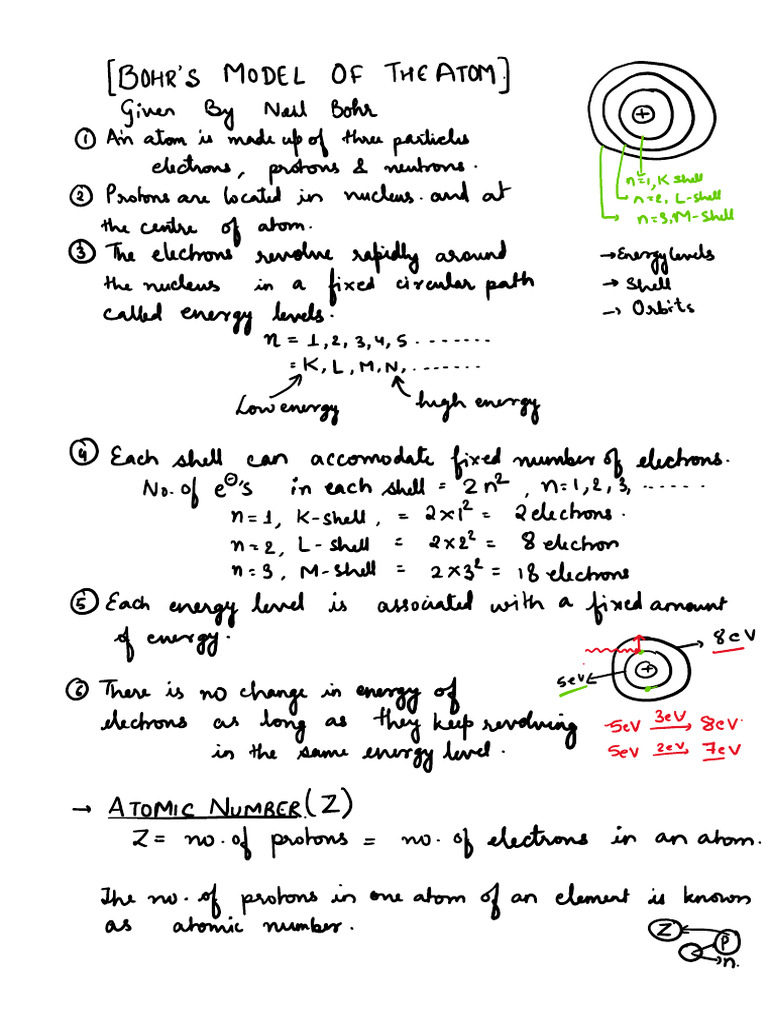 [BOHR'S MODEL OF THE ATOM]
Given By Neil Bohr
① An atom is made up of three particles
electrons, protons & neutrons.
② Protons are located in nucleus and at
the centre of atom.
③ The electrons revolve rapidly around
the nucleus in a fixed circular path
called energy levels.
n = 1, 2, 3, 4, 5 .......
= K, L, M, N, .......
Low energy
high energy
+
n=1, K shell
n=2, L-shell
n=3, M-Shell
→ Energy levels
→ Shell
→ Orbits
④ Each shell can accomodate fixed number of electrons.
No. of e⊖'s in each shell = 2n², n=1, 2, 3, ......
n=1, K-shell, = 2×1² = 2 electrons.
n=2, L-shell = 2×2² = 8 electron
n=3, M-shell = 2×3² = 18 electrons
⑤ Each energy level is associated with a fixed amount
of energy.
8eV
+
5eV
⑥ There is no change in energy of
electrons as long as they keep revolving
in the same energy level.
5eV 3eV→ 8eV
5eV 2eV→ 7eV
→ ATOMIC NUMBER (Z)
Z = no. of protons = no. of electrons in an atom.
The no. of protons in one atom of an element is known
as atomic number.
Z
P
n.